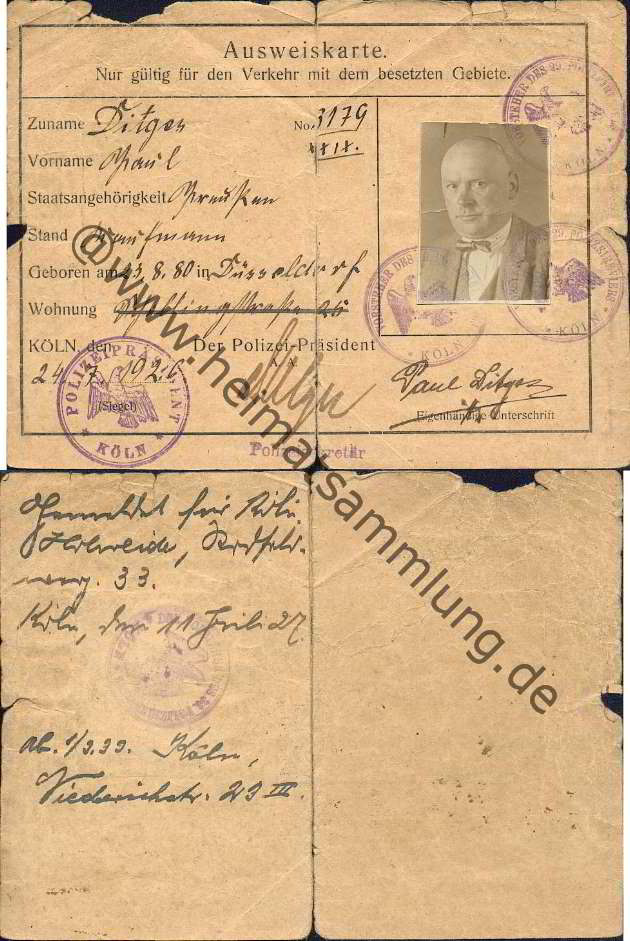 Ausweiskarte.
Nur gültig für den Verkehr mit dem besetzten Gebiete.
Zuname Ditges No. 3179
Vorname Paul
Staatsangehörigkeit Preußen
Stand Kaufmann
Geboren am 23.8.80 in Düsseldorf
Wohnung
KÖLN, den Der Polizei-Präsident
24.7.1926 I.A.
(Siegel)
POLIZEIPRÄSIDENT
KÖLN
Paul Ditges
Eigenhändige Unterschrift
Polizeisekretär
VORSTEHER DES 29. POLIZEI
KÖLN
VORSTEHER DES
KÖLN
KÖLN
Gemeldet für Köln
Holweide,
weg. 33.
Köln, den 11 Juli 27
ab. Köln,
23 III.
@www.heimatsammlung.de